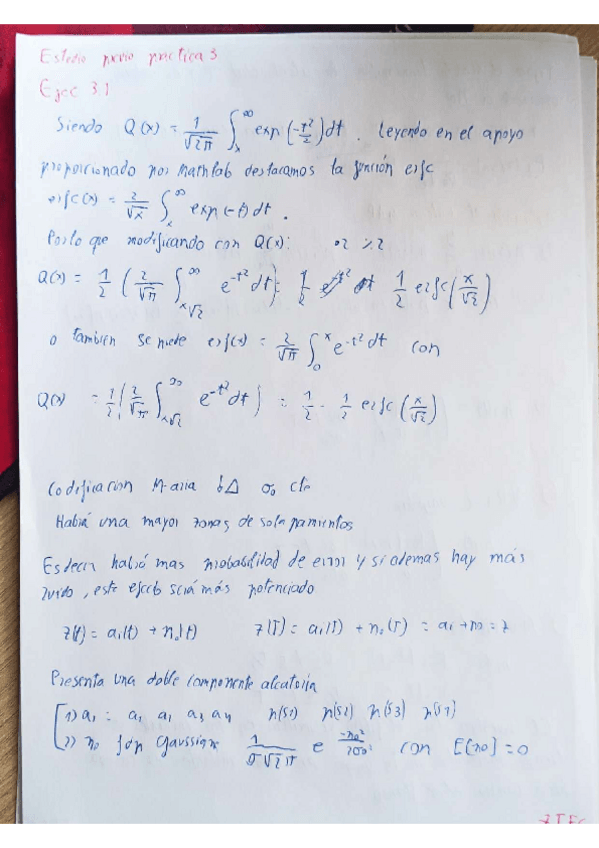 Estudio previo practica 3
Ejec 3.1
Siendo Q(x) = 1/√2π ∫ₓ^∞ exp(-t²/2)dt . Leyendo en el apoyo
proporcionado por Mathlab destacamos la función erfc
erfc(x) = 2/√x ∫ₓ^∞ exp(-t)dt .
Por lo que modificando con Q(x): •2 %2
Q(x) = 1/2 (2/√π ∫_{x√2}^∞ e^{-t²}dt) = 1/2 erfc(x/√2)
o tambien se puede erf(x) = 2/√π ∫₀^x e^{-t²}dt con
Q(x) = 1/2 (2/√π ∫_{x√2}^∞ e^{-t²}dt) = 1/2 - 1/2 erfc(x/√2)
Codificacion M-aria b△ σ₀ cte
Habrá una mayor zonas de solapamientos
Es decir habrá mas probabilidad de error y si ademas hay más
ruido, este efecto será más potenciado
z(t) = aᵢ(t) + n₀(t) z(T) = aᵢ(T) + n₀(T) = aᵢ + n₀ = z
Presenta una doble componente aleatoria
1) aᵢ = a₁ a₁ a₃ a₄ n(s1) n(s2) n(s3)
2) n₀ fdn Gaussiana 1/σ√2π e^{-n₀²/2σ₀²} con E[n₀] = 0